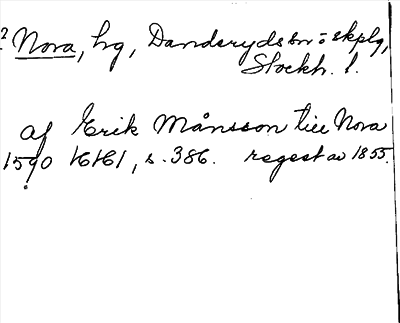 ? Nora, hg, Danderyds sn o skplg,
Stockh. l.
af Erik Månsson till Nora
1590 HH1, s. 386. regest av 1855.